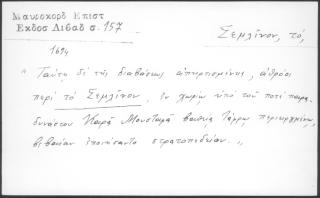 Μαυροκορδ Επιστ
Εκδοσ Λιβαδ σ. 157
Σεμλῖνον, τό,
1694
" Ταύτης δὲ τῆς διαβάσεως ἀπηρτισμένης, ἀθρόοι
περὶ τὸ Σεμλῖνον, ἐν χωρίῳ ὑπὸ τοῦ ποτὲ παρα-
δυνάστου Καρᾶ Μουσταφᾶ βαθείᾳ τάφρῳ περιειργμένῳ,
βεβαίαν ἐποιήσαντο στρατοπεδείαν. "